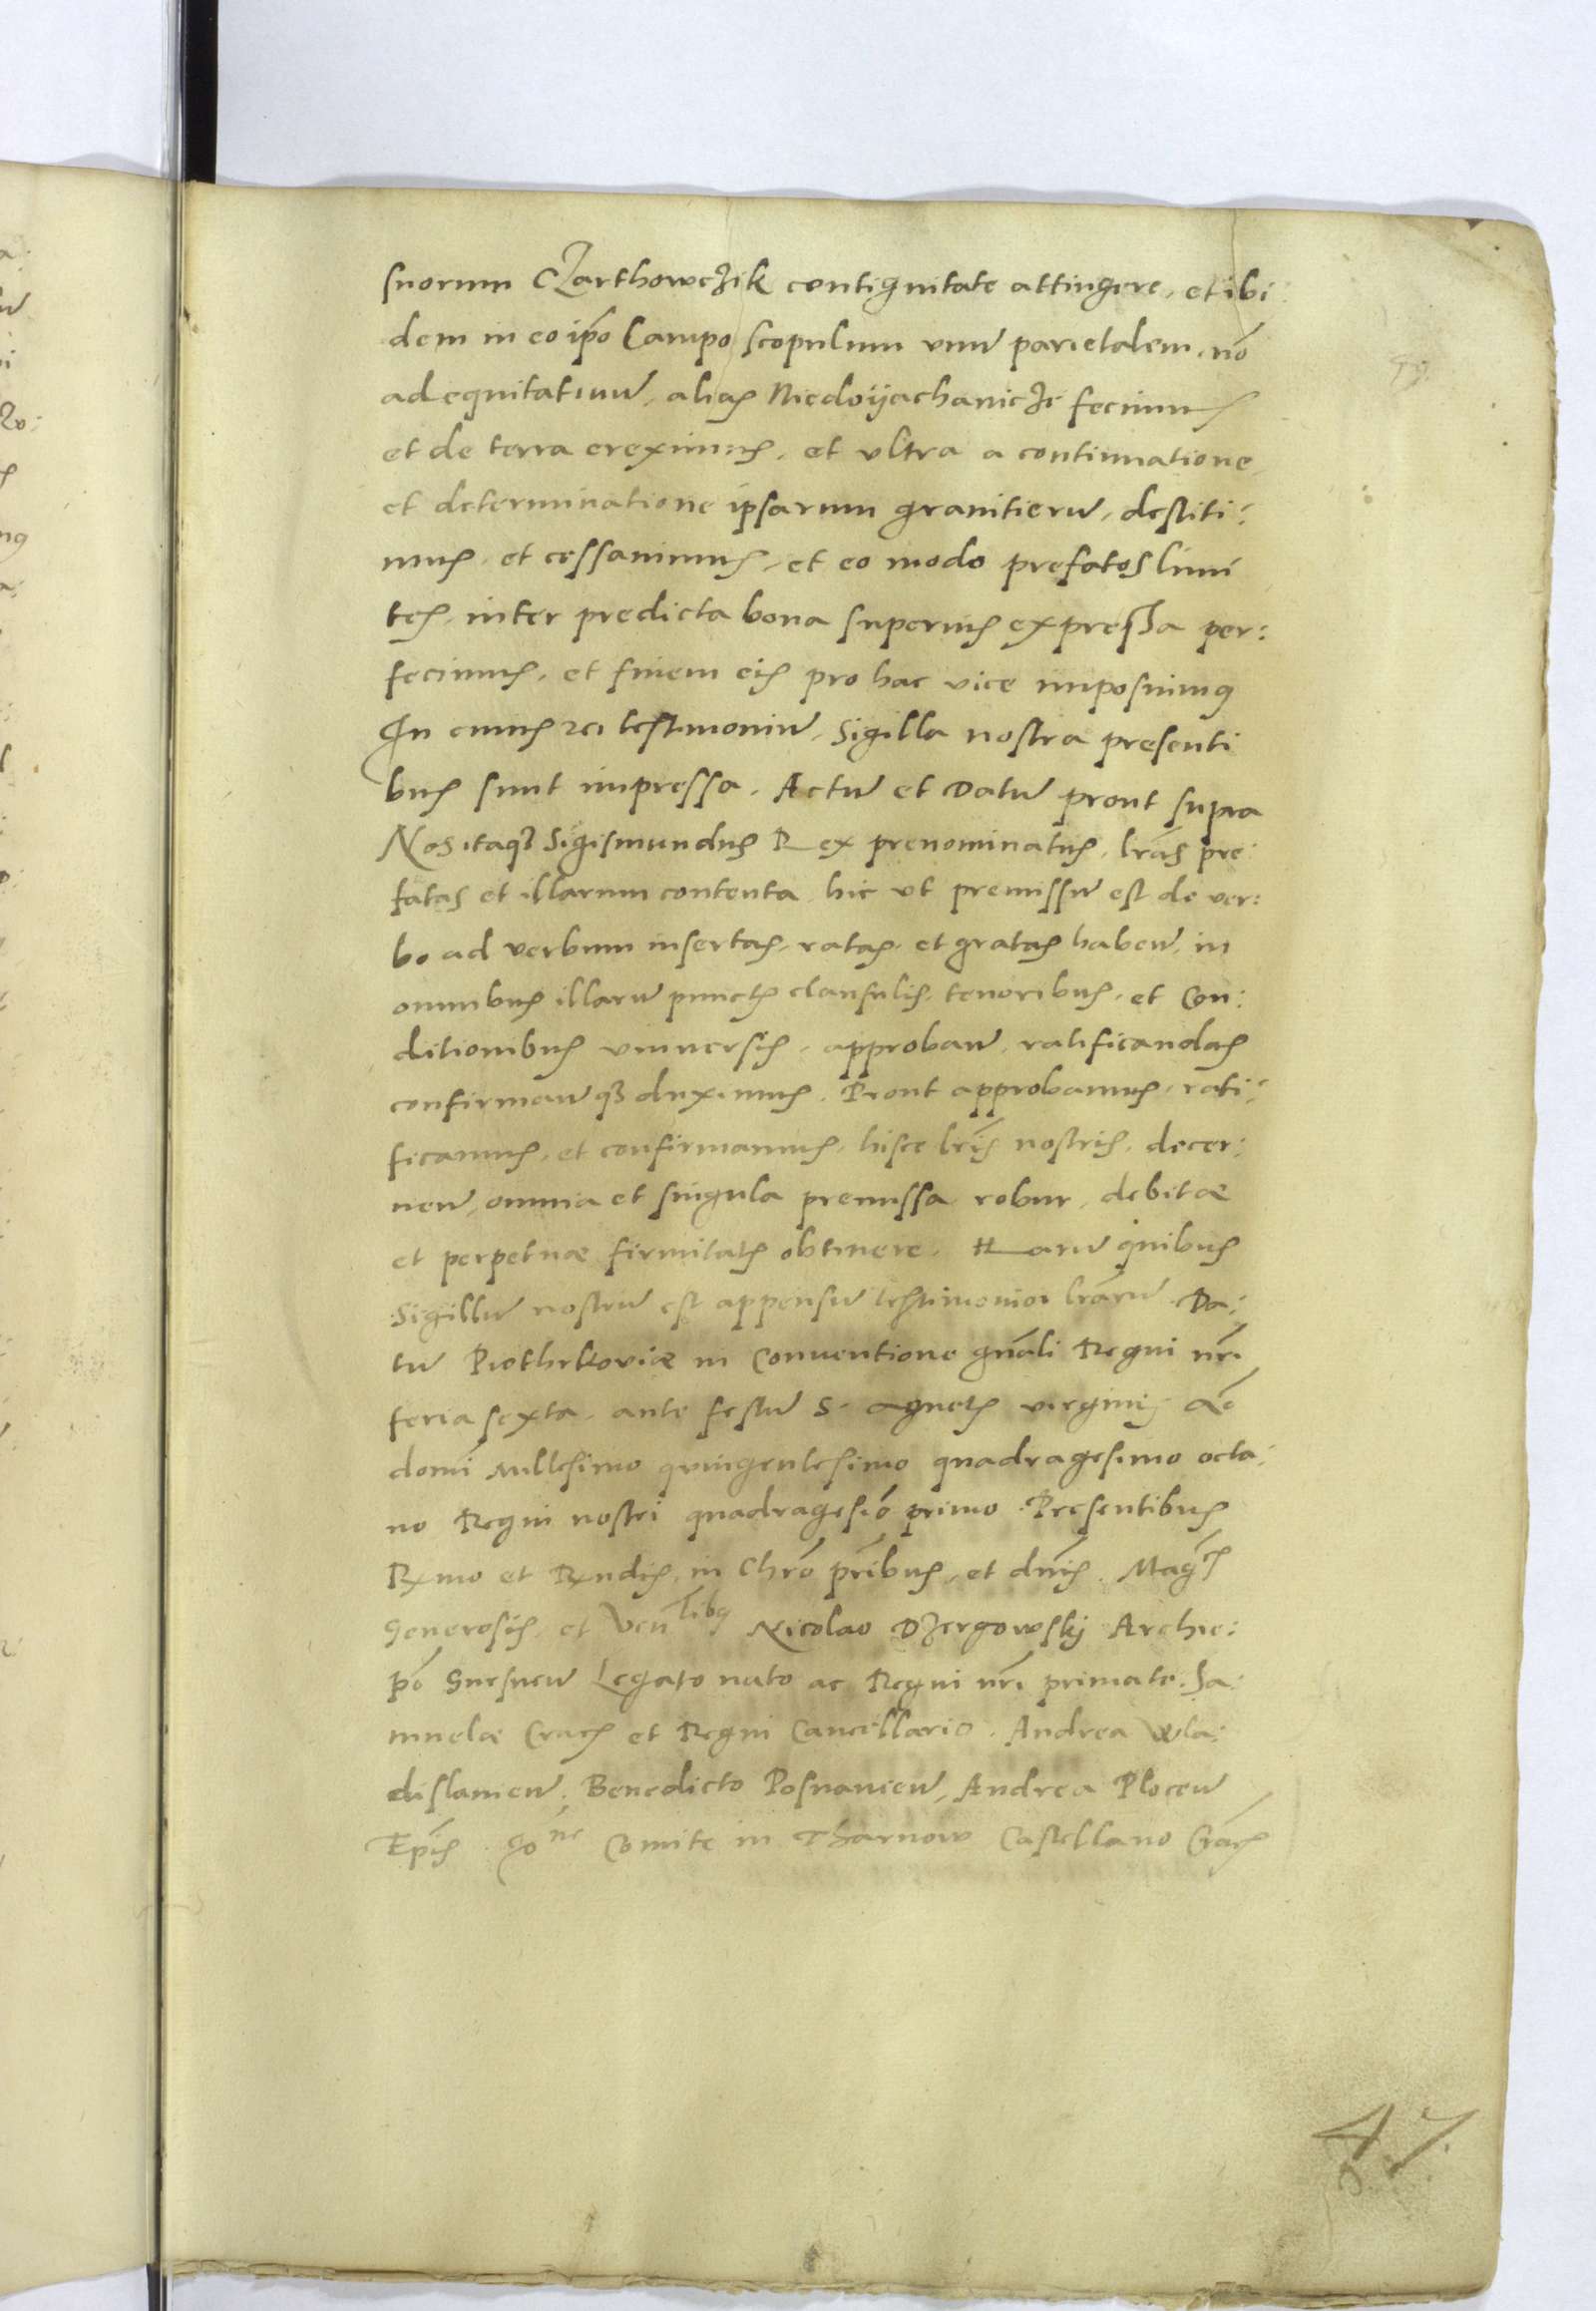 suorum CZarthowcZik contiguitate attingere, et ibi:
dem in eo ip̄o Campo scopulum vnū parietalem, nō
adequitatiuū, alias Niedoÿachanicze fecimus
et de terra ereximus, et vltra a continuatione
et determinatione ipsarum granitierū, destiti:
mus, et cessauimus, et eo modo prefatos limi
tes, inter predicta bona superius expressa per:
fecimus, et finem eis pro hac vice imposuimus
In cuius rei testimoniū, Sigilla nostra presenti
bus sunt impressa. Actū et Datū prout supra
Nos itaq₃ Sigismundus Rex prenominatus, lrās pre:
fatas et illarum contenta hic vt premissū est de ver:
bo ad verbum insertas, ratas, et gratas habeñ, in
omnibus illarū punctis clausulis, tenoribus, et Con:
ditionibus vniuersis, approbañ, ratificandas
confirmañ q₃ duximus. Prout approbamus, rati:
ficamus, et confirmamus, hisce lrīs nostris, decer:
neñ, omnia et singula premissa robur, debitæ
et perpetuæ firmitatis obtinere. Harū quibus
Sigillū nostrū est appensū testimonio lrārū Da:
tū Piothrkoviæ in Conuentione gn̄ali Regni nr̄i
feria sexta, ante festū S. Agnetis virginis Aō
domī Millesimo quingentesimo quadragesimo octa:
uo Regni nostri quadragesiō primo. Presentibus
Rx̄mo et Rx̄ndis, in Chrō pr̄ibus, et dn̄is. Mag̃cis
generosis, et Ven libus Nicolao DZergowskj Archie:
pō Gnesneñ Legato nato ac Regni nr̄i primate. Sa:
muelæ Cracꝭ et Regni Cancellario. Andrea Wla:
dislauieñ, Benedicto Posnanieñ, Andrea Ploceñ
Ep̄is. Jone Comite in Tharnow Castellano Crācꝭ
47